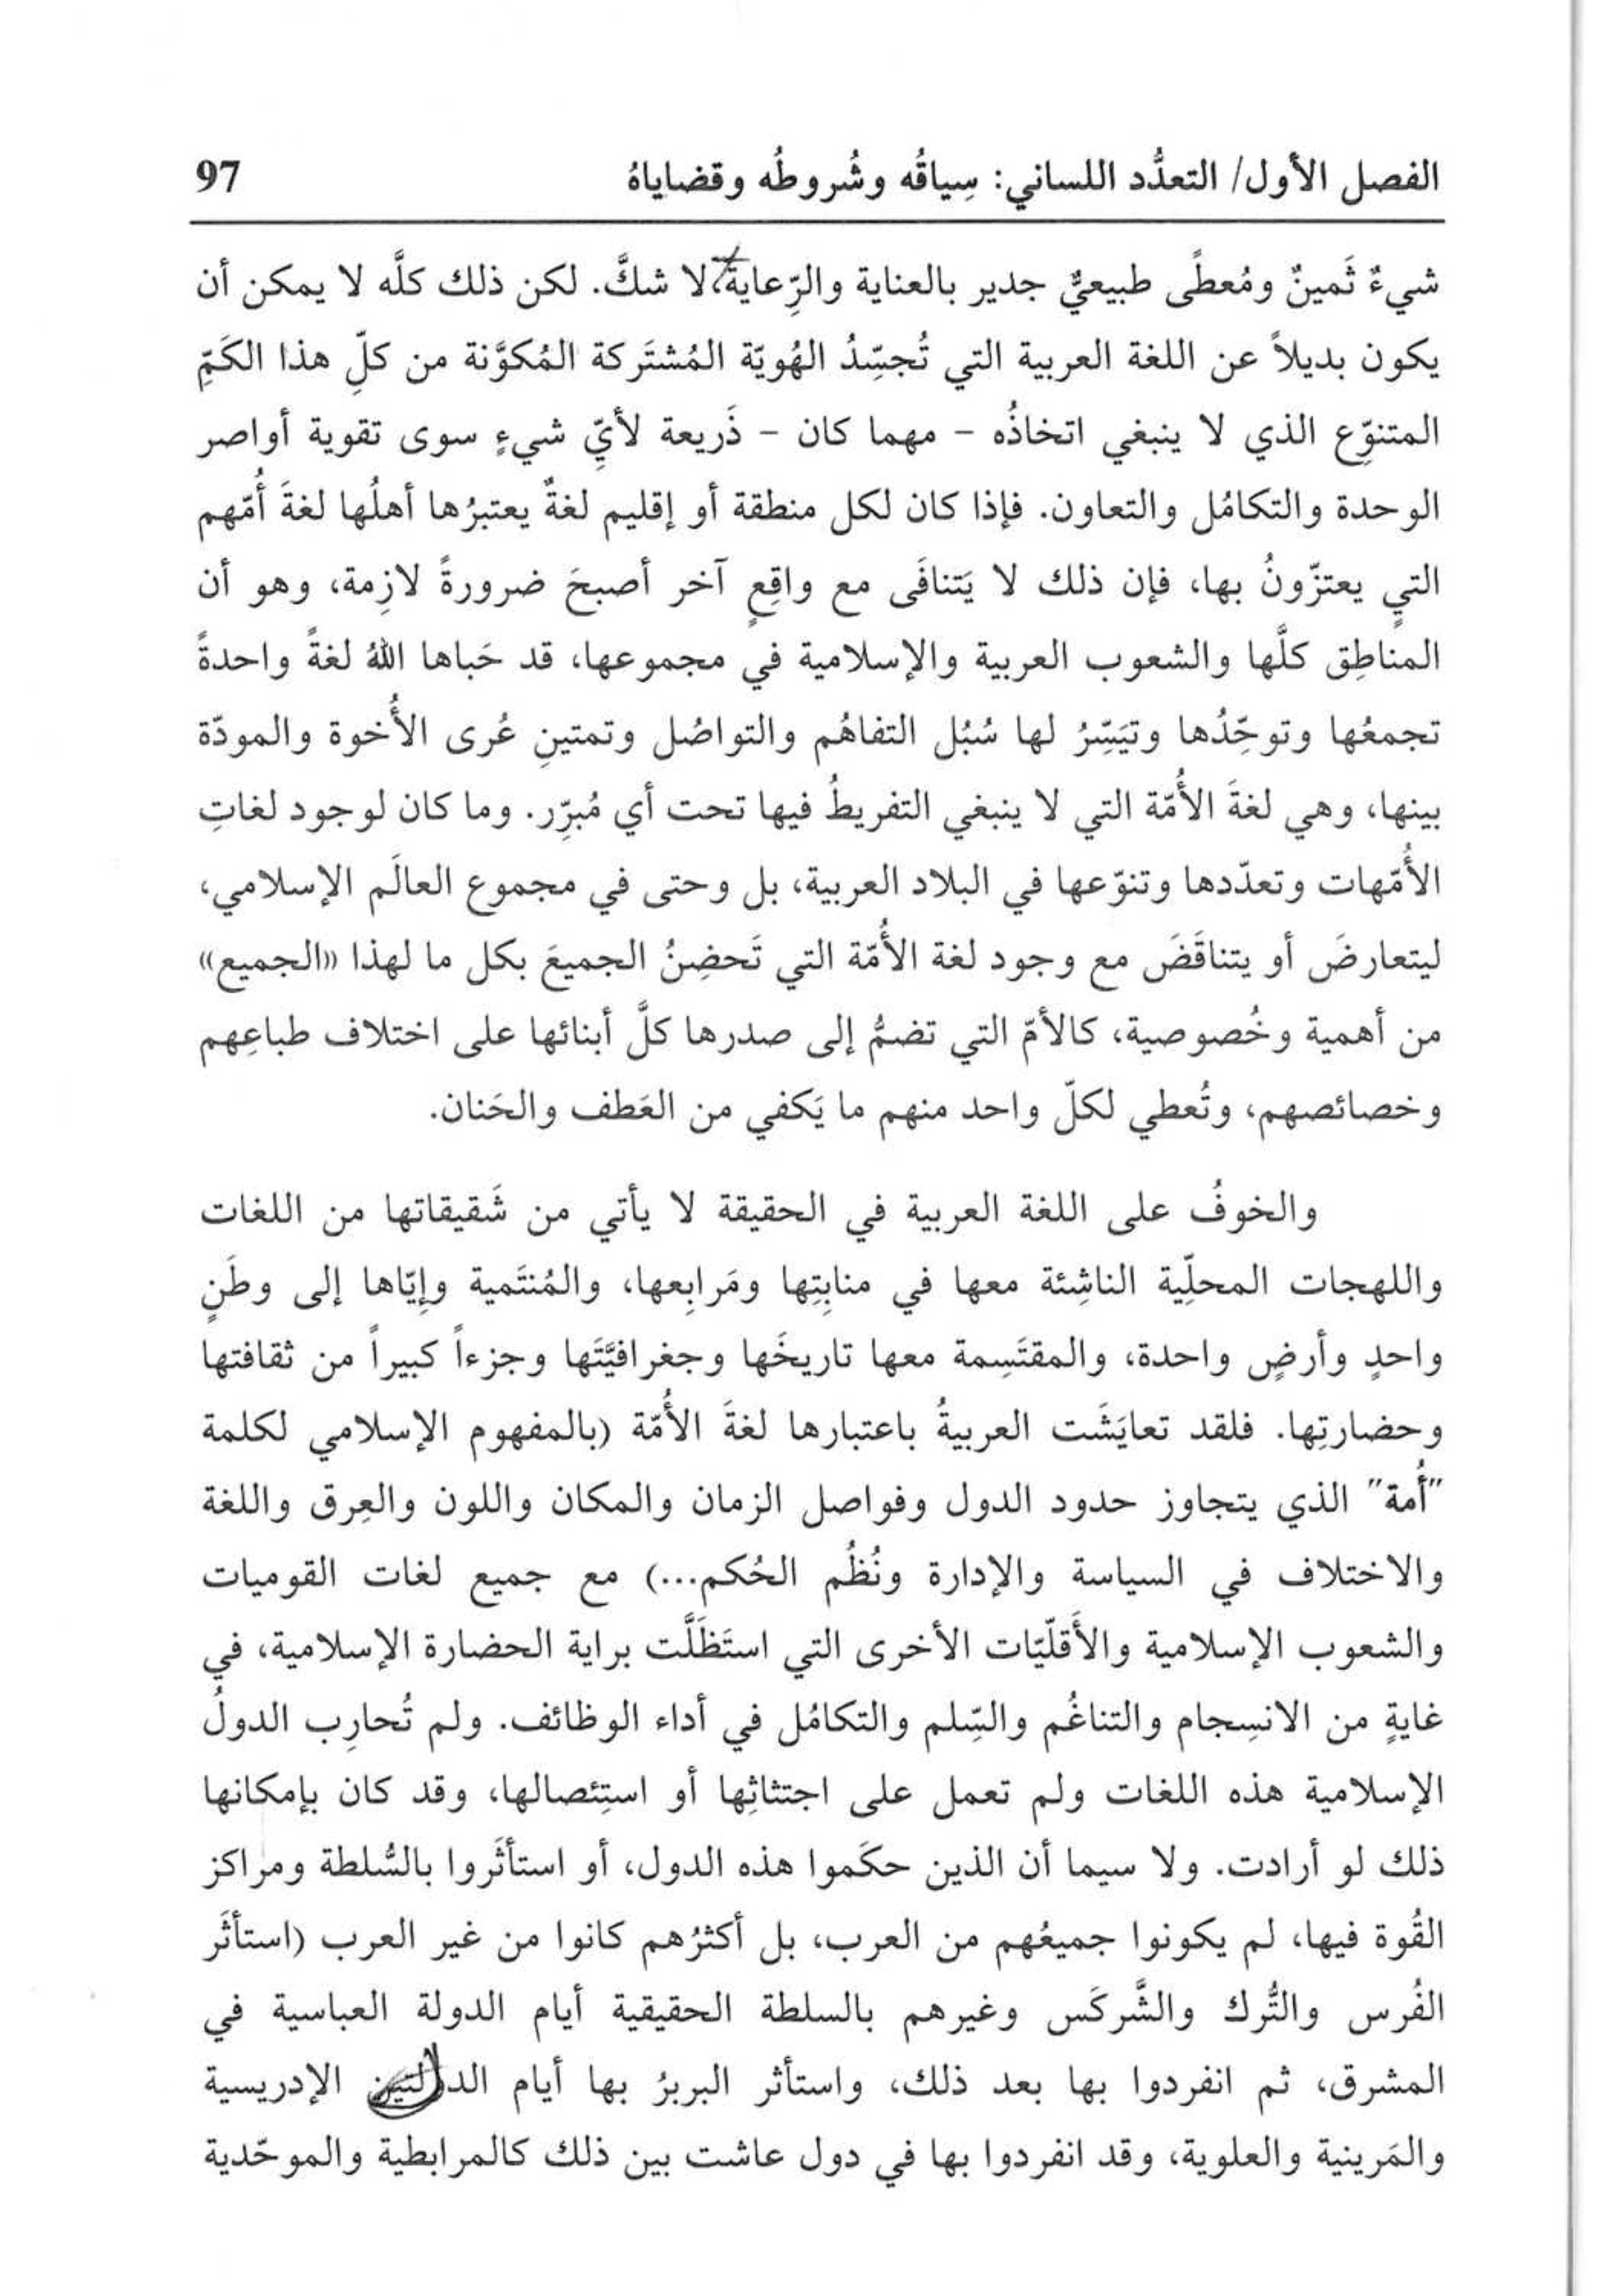 الفصل الأول/ التعدُّد اللساني: سِياقُه وشُروطُه وقضاياهُ 97
شيءٌ ثَمينٌ ومُعطًى طبيعيٌّ جدير بالعناية والرِّعاية، لا شكَّ. لكن ذلك كلَّه لا يمكن أن
يكون بديلاً عن اللغة العربية التي تُجسِّدُ الهُويّة المُشتَركة المُكوَّنة من كلِّ هذا الكَمِّ
المتنوِّع الذي لا ينبغي اتخاذُه – مهما كان – ذَريعة لأيِّ شيءٍ سوى تقوية أواصر
الوحدة والتكامُل والتعاون. فإذا كان لكل منطقة أو إقليم لغةٌ يعتبرُها أهلُها لغةَ أُمّهم
التي يعتزّونُ بها، فإن ذلك لا يَتنافَى مع واقِعٍ آخر أصبحَ ضرورةً لازِمة، وهو أن
المناطِق كلَّها والشعوب العربية والإسلامية في مجموعها، قد حَباها اللهُ لغةً واحدةً
تجمعُها وتوحِّدُها وتيَسِّرُ لها سُبُل التفاهُم والتواصُل وتمتينِ عُرى الأُخوة والمودّة
بينها، وهي لغةَ الأُمّة التي لا ينبغي التفريطُ فيها تحت أي مُبرِّر. وما كان لوجود لغاتِ
الأُمّهات وتعدّدها وتنوّعها في البلاد العربية، بل وحتى في مجموع العالَم الإسلامي،
ليتعارضَ أو يتناقَضَ مع وجود لغة الأُمّة التي تَحضِنُ الجميعَ بكل ما لهذا «الجميع»
من أهمية وخُصوصية، كالأمّ التي تضمُّ إلى صدرها كلَّ أبنائها على اختلاف طباعِهم
وخصائصهم، وتُعطي لكلّ واحد منهم ما يَكفي من العَطف والحَنان.
والخوفُ على اللغة العربية في الحقيقة لا يأتي من شَقيقاتها من اللغات
واللهجات المحلِّية الناشِئة معها في منابِتِها ومَرابِعها، والمُنتَمية وإيّاها إلى وطَنٍ
واحدٍ وأرضٍ واحدة، والمقتَسِمة معها تاريخَها وجغرافيَّتَها وجزءاً كبيراً من ثقافتها
وحضارتِها. فلقد تعايَشَت العربيةُ باعتبارها لغةَ الأُمّة (بالمفهوم الإسلامي لكلمة
"أُمة" الذي يتجاوز حدود الدول وفواصل الزمان والمكان واللون والعِرق واللغة
والاختلاف في السياسة والإدارة ونُظُم الحُكم...) مع جميع لغات القوميات
والشعوب الإسلامية والأَقلّيّات الأخرى التي استَظَلَّت براية الحضارة الإسلامية، في
غايةٍ من الانسِجام والتناغُم والسِّلم والتكامُل في أداء الوظائف. ولم تُحارِب الدولُ
الإسلامية هذه اللغات ولم تعمل على اجتثاثِها أو استِئصالها، وقد كان بإمكانها
ذلك لو أرادت. ولا سيما أن الذين حكَموا هذه الدول، أو استأثَروا بالسُّلطة ومراكز
القُوة فيها، لم يكونوا جميعُهم من العرب، بل أكثرُهم كانوا من غير العرب (استأثَر
الفُرس والتُّرك والشَّركَس وغيرهم بالسلطة الحقيقية أيام الدولة العباسية في
المشرق، ثم انفردوا بها بعد ذلك، واستأثر البربرُ بها أيام الدولتين الإدريسية
والمَرينية والعلوية، وقد انفردوا بها في دول عاشت بين ذلك كالمرابطية والموحّدية